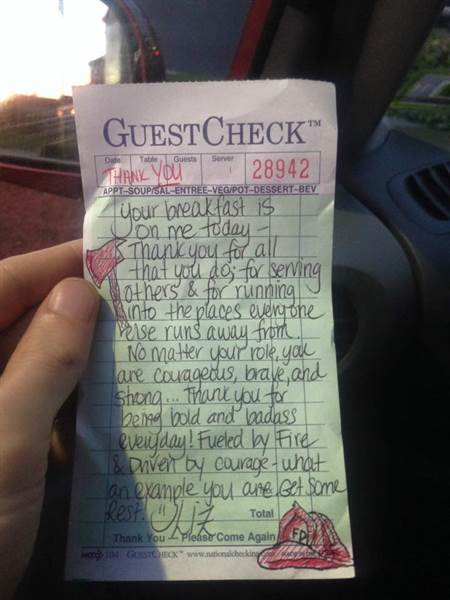 GUESTCHECK™
Date Table Guests Server
THANK YOU 28942
APPT-SOUP/SAL-ENTREE-VEG/POT-DESSERT-BEV
your breakfast is
on me today -
Thank you for all
that you do; for serving
others & for running
into the places everyone
else runs away from.
No matter your role, you
are courageous, brave, and
strong... Thank you for
being bold and badass
everyday! Fueled by Fire
& Driven by courage - what
an example you are. Get some
Rest. Liz
Total
FD
Thank You - Please Come Again
GUESTCHECK™ www.nationalchecking